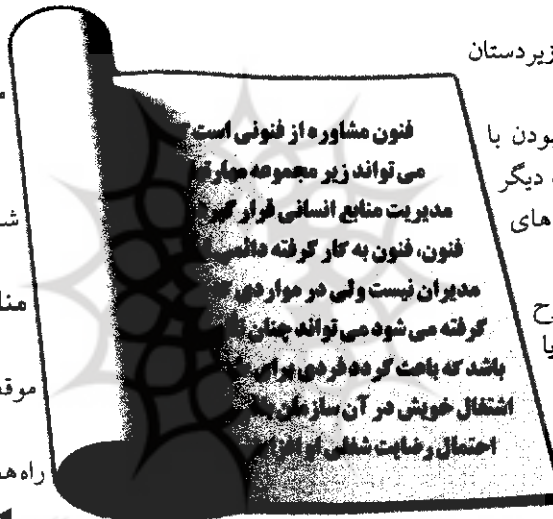 زیردستان
بودن با
دیگر
های
فنون مشاوره از فنونی است
می‌تواند زیر مجموعه
مدیریت منابع انسانی قرار گیرد
فنون، فنون به کار گرفته
مدیران نیست ولی در مواردی
گرفته می شود می تواند چنان
باشد که باعث گردد فردی برای
اشتغال خویش در آن سازمان
احتمال رضایت شغلی او
راه‌ه